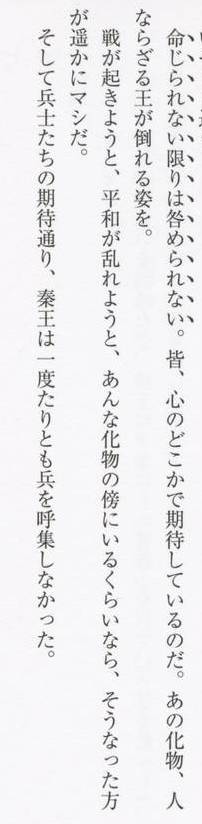 命じられない限りは咎められない。皆、心のどこかで期待しているのだ。あの化物、人
ならざる王が倒れる姿を。
戦が起きようと、平和が乱れようと、あんな化物の傍にいるくらいなら、そうなった方
が遥かにマシだ。
そして兵士たちの期待通り、秦王は一度たりとも兵を呼集しなかった。